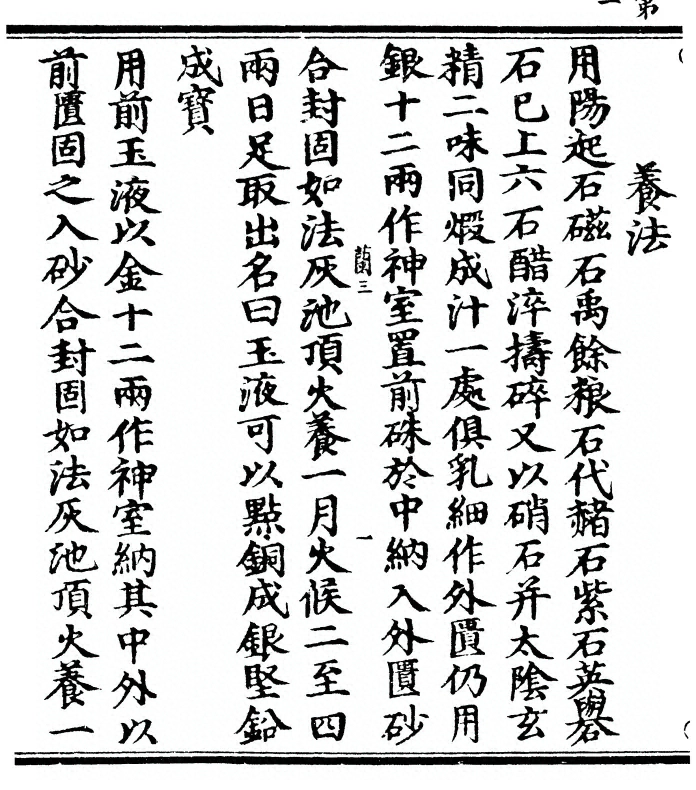 第一
養法
用陽起石磁石禹餘粮石代赭石紫石英礜
石已上六石醋淬擣碎又以硝石并太陰玄
精二味同煅成汁一處俱乳細作外匱仍用
銀十二兩作神室置前硃於中納入外匱砂
蘭三
一
合封固如法灰池頂火養一月火候二至四
兩日足取出名曰玉液可以點銅成銀堅鉛
成寶
用前玉液以金十二兩作神室納其中外以
前匱固之入砂合封固如法灰池頂火養一